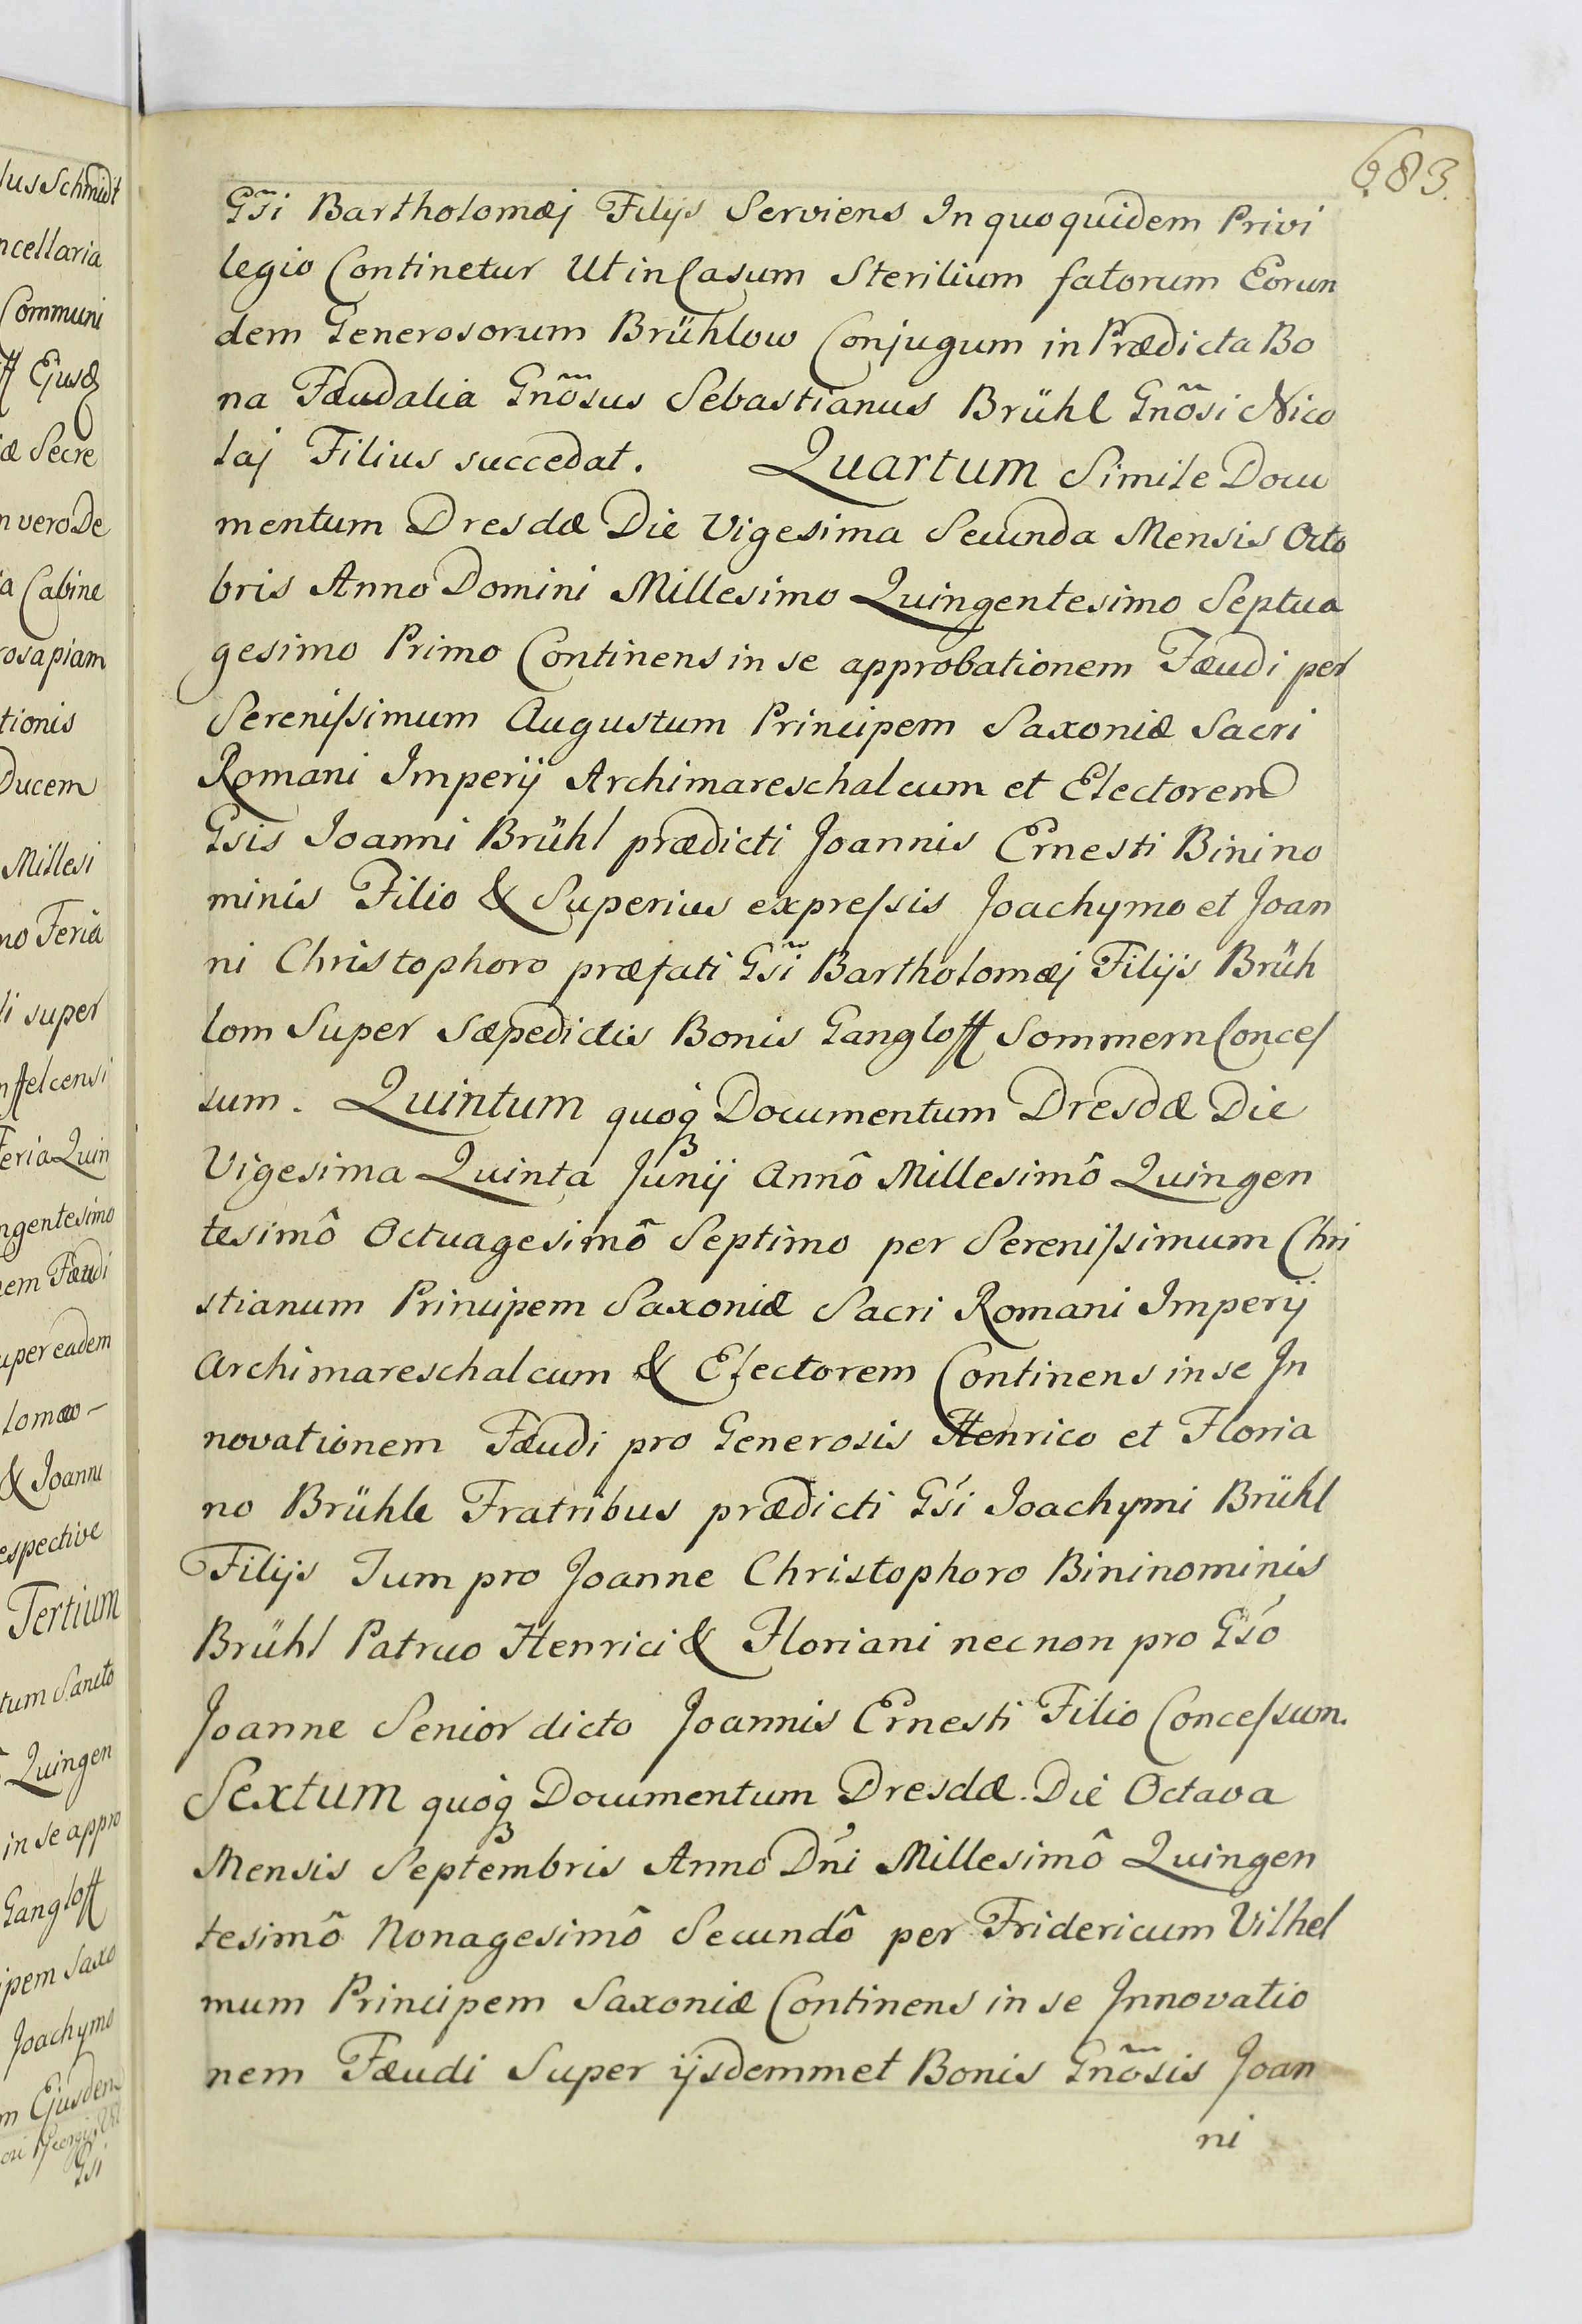 683.
Gsi Bartholomæj Filijs Serviens In quo quidem Privi
legio Continetur Ut in Casum Sterilium fatorum Eorun
dem Generosorum Brühlow Conjugum in Prædicta Bo
na Fæudalia Gnõsus Sebastianus Brühl Gnõsi Nico
laj Filius succedat. Quartum Simile Docu
mentum Dresdæ Die Vigesima Secunda Mensis Octo
bris Anno Domini Millesimo Quingentesimo Septua
gesimo Primo Continens in se approbationem Fæudi per
Sereniſsimum Augustum Principem Saxoniæ Sacri
Romani Imperij Archimareschalcum et Electorem
Gsis Joanni Brühl prædicti Joannis Ernesti Binino
minis Filio & Superius expreſsis Joachymo et Joan
ni Christophoro præfati Gsi Bartholomæj Filijs Brüh
lom Super Sæpedictis Bonis Gangloff Sommern Conceſ
sum. Quintum quoq₃ Documentum Dresdæ Die
Vigesima Quinta Junij Annô Millesimô Quingen
tesimô Octuagesimô Septimo per Sereniſsimum Chri
stianum Principem Saxoniæ Sacri Romani Imperij
Archimareschalcum & Electorem Continens in se In
novationem Fæudi pro Generosis Henrico et Floria
no Brühle Fratribus prædicti Gśi Joachymi Brühl
Filijs Tum pro Joanne Christophoro Bininominis
Brühl Patruo Henrici & Floriani necnon pro Gśo
Joanne Senior dicto Joannis Ernesti Filio Conceſsum.
Sextum quoq₃ Documentum Dresdæ. Die Octava
Mensis Septembris Anno Dńi Millesimô Quingen
tesimô Nonagesimô Secundô per Fridericum Vilhel
mum Principem Saxoniæ Continens in se Innovatio
nem Fæudi Super ijsdemmet Bonis Gnõsis Joan
ni